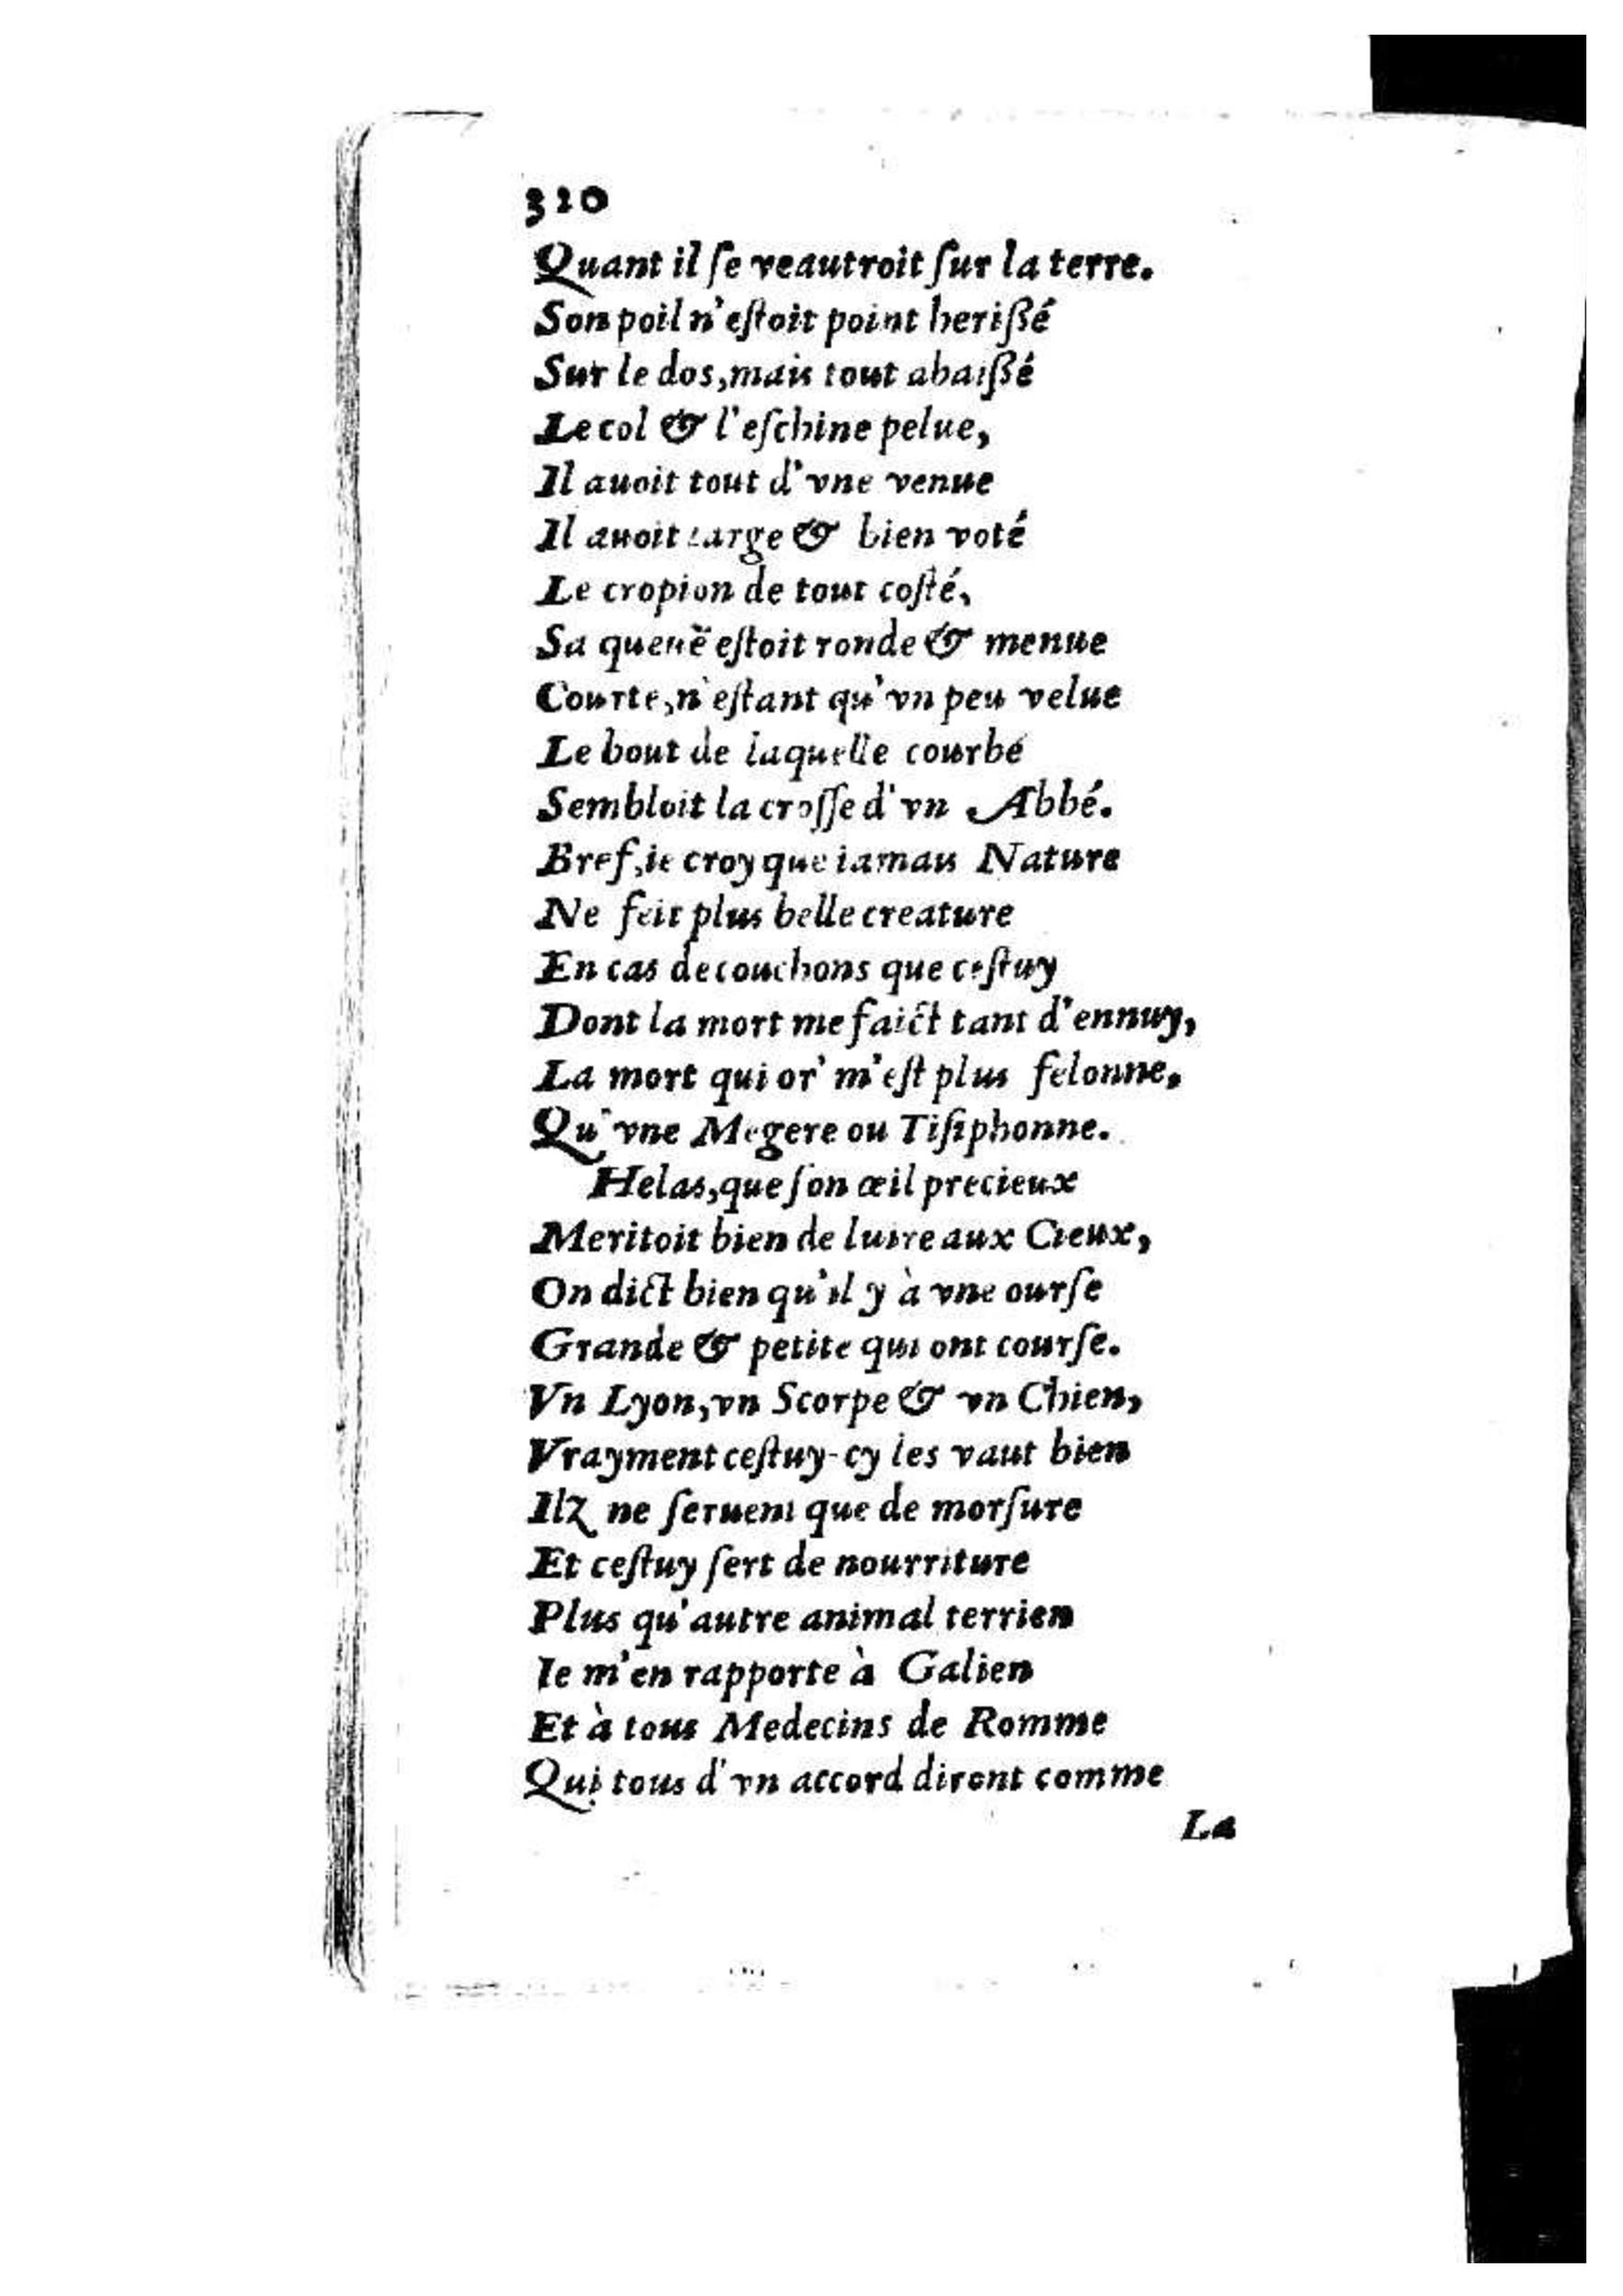 320
Quant il ſe veautroit ſur la terre.
Son poil n'eſtoit point herißé
Sur le dos, mais tout abaißé
Le col & l'eſchine pelue,
Il auoit tout d'vne venue
Il auoit large & bien voté
Le cropion de tout coſté,
Sa queuë eſtoit ronde & menue
Courte, n'eſtant qu'vn peu velue
Le bout de laquelle courbé
Sembloit la croſſe d'vn Abbé.
Bref, ie croy que iamais Nature
Ne feit plus belle creature
En cas de couchons que ceſtuy
Dont la mort me faict tant d'ennuy,
La mort qui or' m'eſt plus felonne,
Qu'vne Megere ou Tiſiphonne.
Helas, que ſon œil precieux
Meritoit bien de luire aux Cieux,
On dict bien qu'il y à vne ourſe
Grande & petite qui ont courſe.
Vn Lyon, vn Scorpe & vn Chien,
Vrayment ceſtuy-cy les vaut bien
Ilz ne ſeruent que de morſure
Et ceſtuy ſert de nourriture
Plus qu'autre animal terrien
Ie m'en rapporte à Galien
Et à tous Medecins de Romme
Qui tous d'vn accord diront comme
La